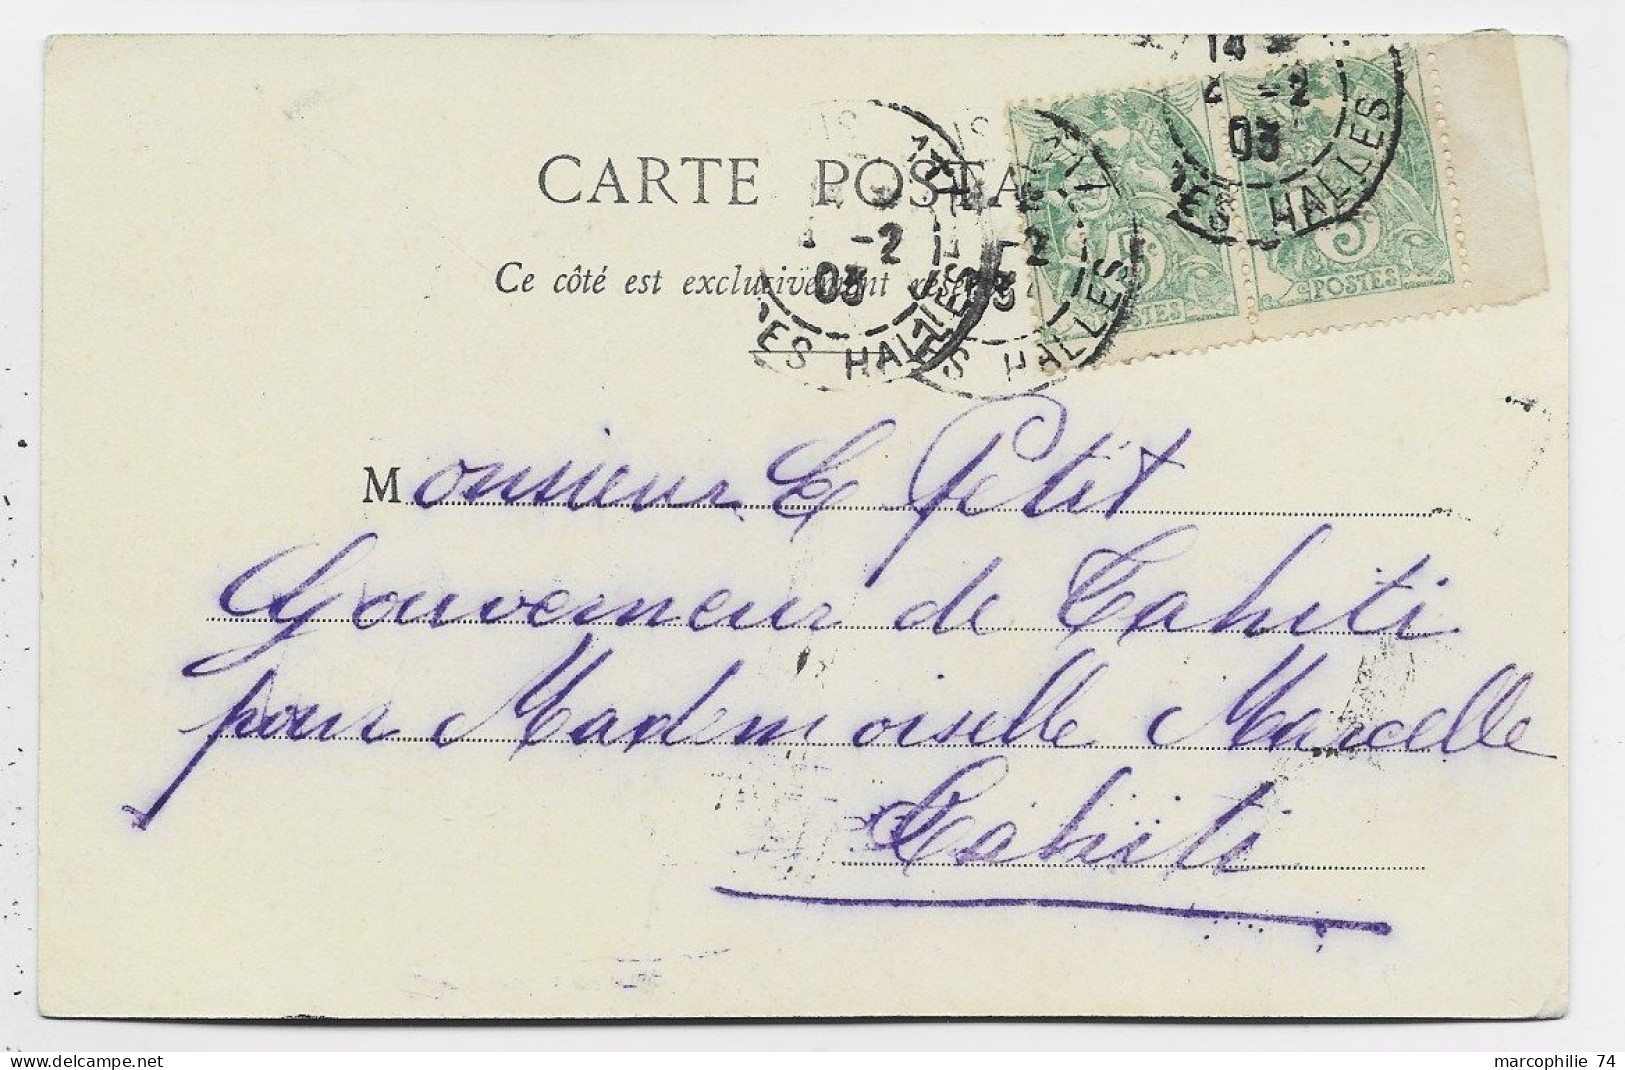 CARTE POSTA
Ce côté est exclusivement réservé
14
2 -2
03
HALLES
-2
03
HALLES
-2
03
HALLES
5c
POSTES
5c
POSTES
Monsieur Le Petit
Gouverneur de Tahiti
pour Mademoiselle Marcelle
Tahiti
marcophilie 74